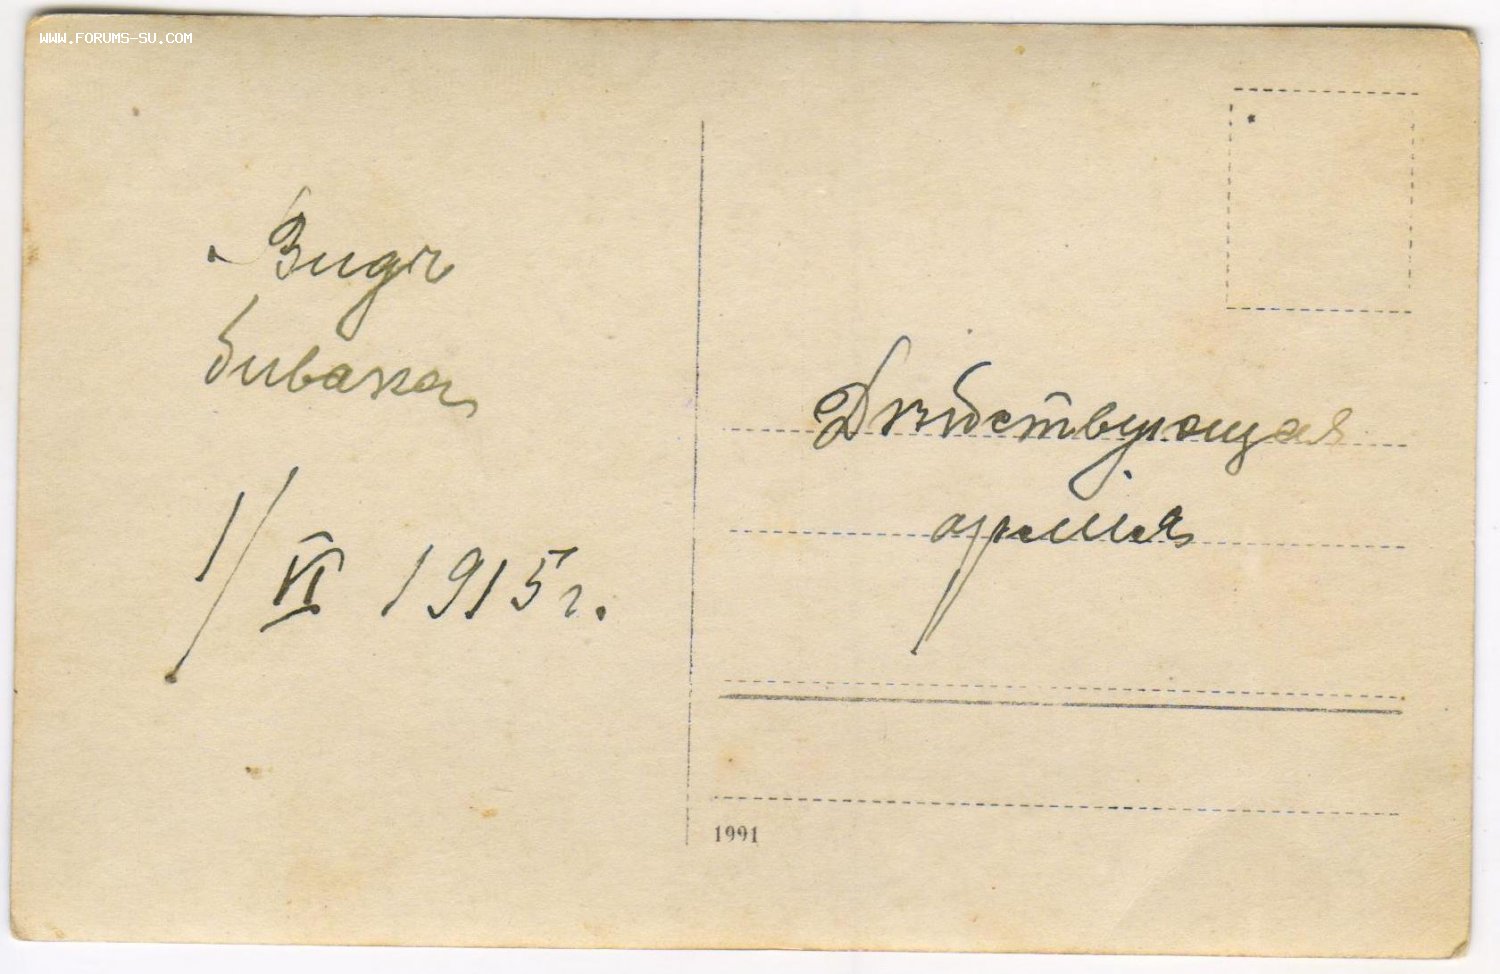 WWW.FORUMS-SU.COM
Видъ
бивака
1/VI 1915 г.
Дѣйствующая
армія
1991